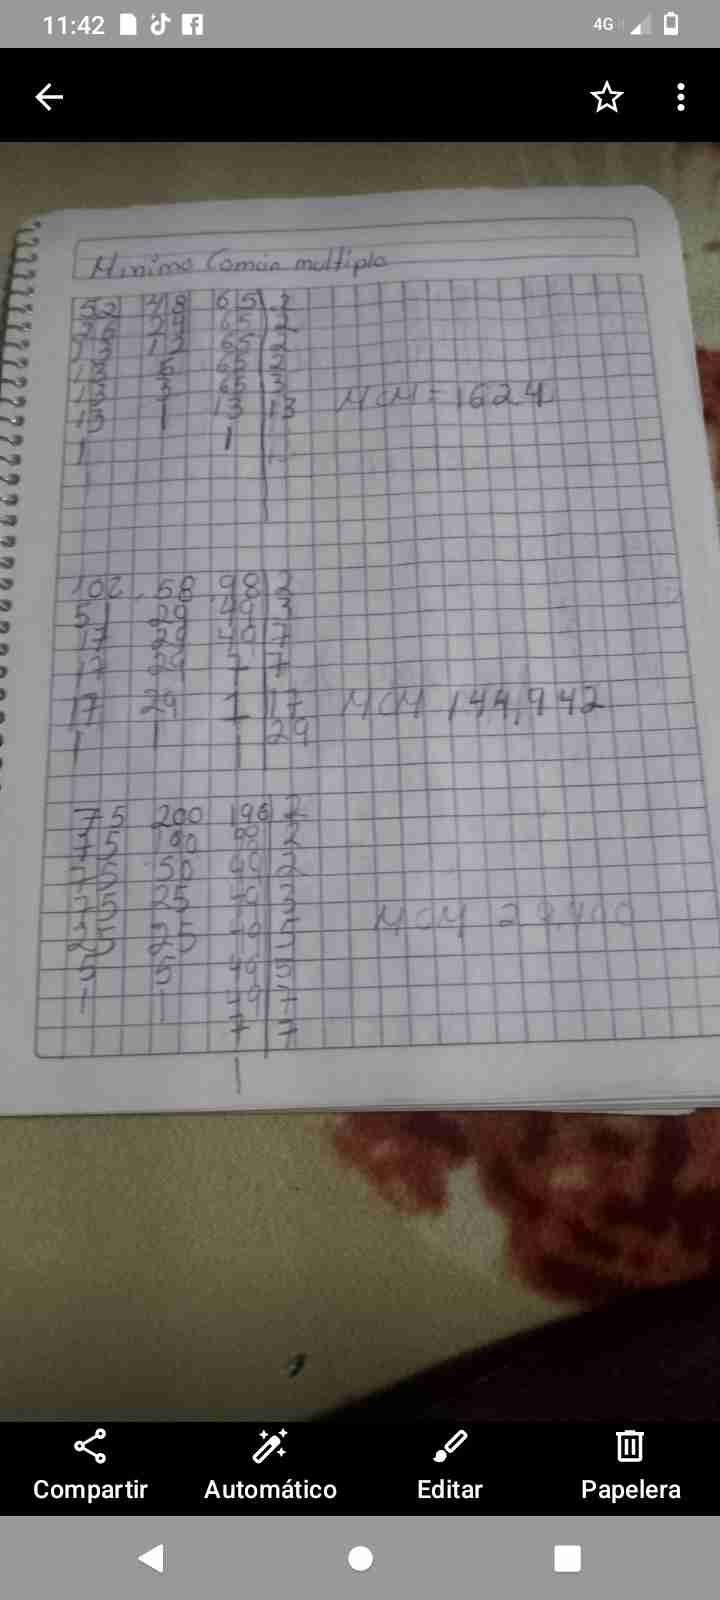 11:42 4G
Minimo Común multiplo
52 48 65 2
26 24 65 2
13 12 65 2
13 6 65 2
13 3 65 3
13 1 13 13 MCM = 1624
1 1
102, 58, 98 2
51 29 49 3
17 29 49 7
17 29 7 7
17 29 1 17 MCM 144,942
1 1 1 29
75 200 196 2
75 100 98 2
75 50 49 2
75 25 49 3
25 25 49 5 MCM 29,400
5 5 49 5
1 1 49 7
7 7
1
Compartir Automático Editar Papelera